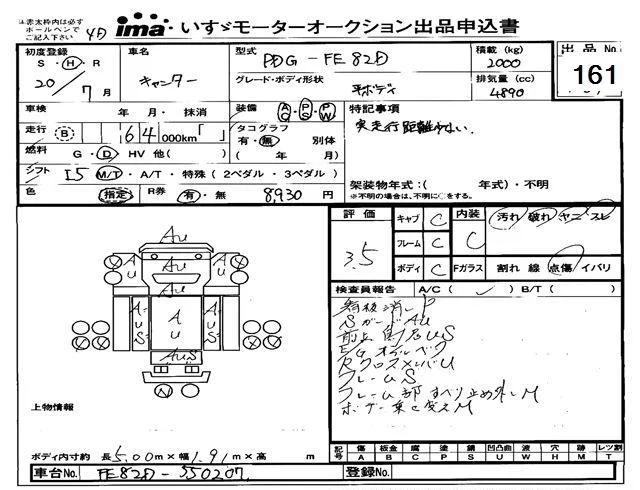 ※赤太枠内は必ず
ボールペンで
ご記入下さい
4D
ima いすゞモーターオークション出品申込書
初度登録 車名 型式 積載(kg) 出品No.
S・H・R キャンター PDG-FE82D 2000 161
20/7月 グレード・ボディ形状 平ボディ 排気量(cc) 4890
車検 年 月・抹消 装備 AC PS PW 特記事項
走行 B 64,000km「 」 タコグラフ 有・無 別体 実走行距離少ない。
燃料 G・D HV 他( ) ( 年 月)
シフト I5 M/T・A/T・特殊(2ペダル・3ペダル) 架装物年式:( 年式)・不明
色 指定 R券 有・無 8,930円 ※不明の場合は、不明に○をする。
評価 3.5 キャブ C 内装 C 汚れ 破れ ヤニ スレ
フレーム C
ボディ C Fガラス 割れ 線 点傷 イバリ
検査員報告 A/C( ✓ ) B/T( )
看板消し P
Sガード AU
US
EGオイル
Rクロスメンバ U
フレーム S
フレーム部 すべり止め外し M
ボデー乗せ変え M
AU
AU AU
AU AU AU
S S
AUS
N
上物情報
ボディ内寸約 長 5.00m×幅 1.91m×高 m
記号 傷 板金 腐 塗 錆 凹凸曲 波 穴 跡 レツ割
A B C P S U W H M T
車台No. FE82D-550207 登録No.